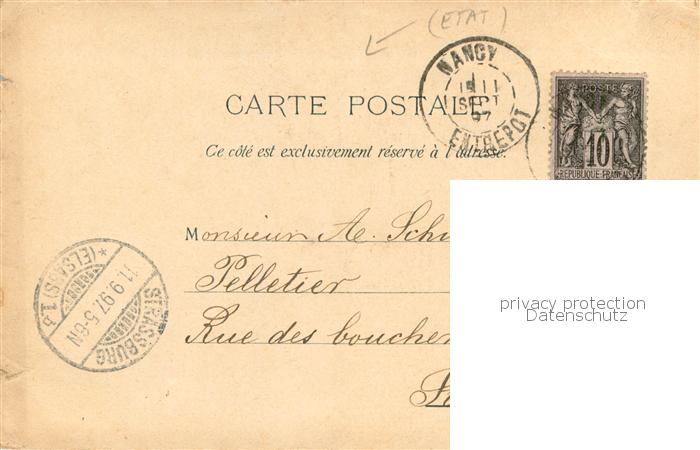 (ETAT)
NANCY
11
SEPT
97
ENTREPOT
CARTE POSTALE
Ce côté est exclusivement réservé à l'adresse.
POSTE
10
REPUBLIQUE FRANCAISE
Monsieur A.
Pelletier
Rue des
STRASSBURG
11.9.97.5-6N
*(ELSASS)1
privacy protection
Datenschutz